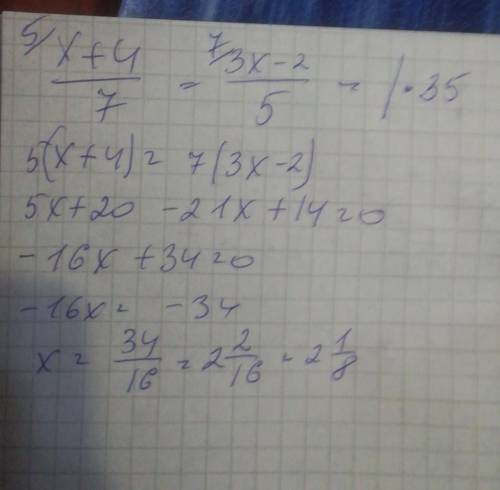 5/ (x+4)/7 = 7/ (3x-2)/5 - | · 35
5(x+4) = 7(3x-2)
5x+20 -21x+14=0
-16x+34=0
-16x= -34
x= 34/16 = 2 2/16 = 2 1/8